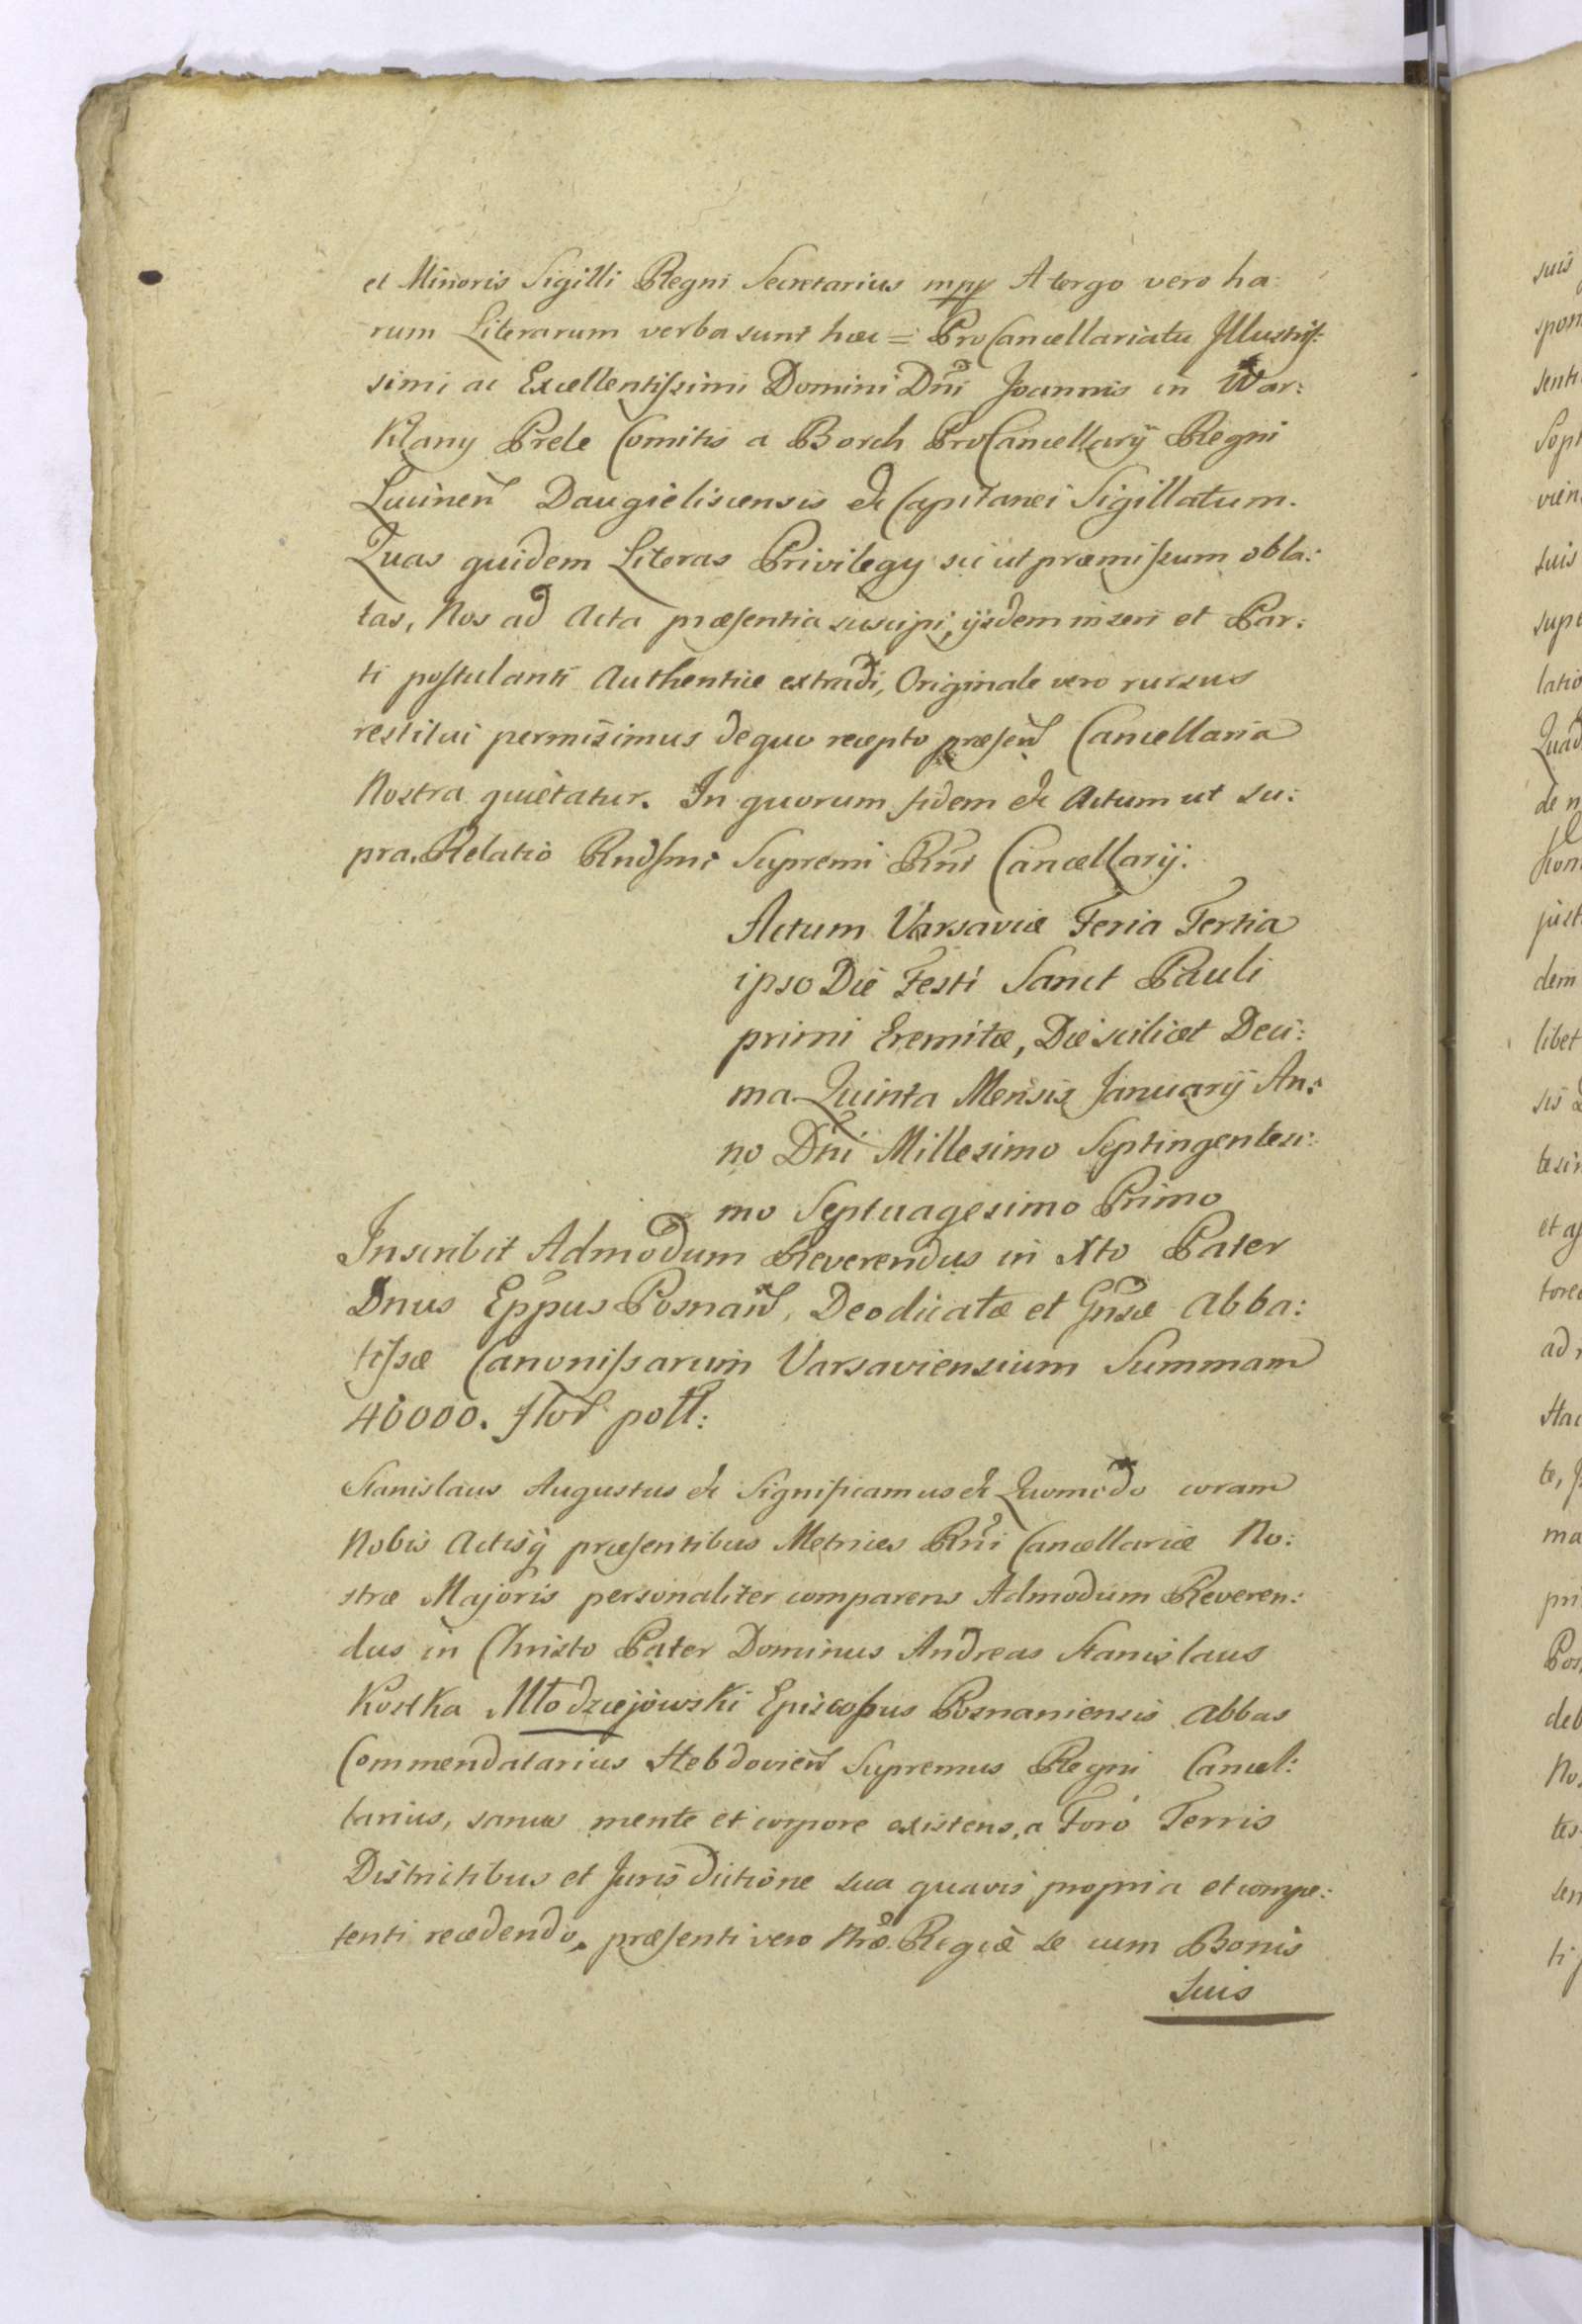 et Minoris Sigilli Regni Secretarius mpp A tergo vero ha:
rum Literarum verba sunt hæc = ProCancellariatu Illustris:
simi ac Excellentissimi Domini Dni Joannis in War:
Klany Prele Comitis a Borch ProCancellarij Regni
Lucinen Daugieliscensis &c Capitanei Sigillatum.
Quas quidem Literas Privilegy sic ut præmissum obla:
tas, Nos ad Acta præsentia suscipi, ijsdem inseri et Par:
ti postulanti Authentice extradi, Originale vero rursus
restitui permisimus de quo recepto præsen Cancellaria
Nostra quietatur. In quorum fidem &c Actum ut su:
pra. Relatio Rndsmi Supremi Rni Cancellarij.
Actum Varsaviæ Feria Tertia
ipso Die Festi Sanct Pauli
primi Eremitæ, Die scilicet Deci:
ma Quinta Mensis Januarij An:
no Dni Millesimo Septingentesi:
mo Septuagesimo Primo
Inscribit Admodum Reverendus in Xto Pater
Dnus Eppus Posnan, Deodicatæ et Gnsæ Abba:
tissæ Canonissarum Varsaviensium Summam
40000. flor poll:
Stanislaus Augustus &c Significamus &c Quomodo coram
Nobis Actisq præsentibus Metrices Rni Cancellariæ No:
stræ Majoris personaliter comparens Admodum Reveren:
dus in Christo Pater Dominus Andreas Stanislaus
Kostka Młodziejowski Episcopus Posnaniensis Abbas
Commendatarius Hebdovien Supremus Regni Cancel:
larius, sanus mente et corpore existens, a Foro Terris
Districtibus et Jurisdictione sua quavis propria et compe:
tenti recedendo, præsenti vero Nræ Regiæ se cum Bonis
Suis